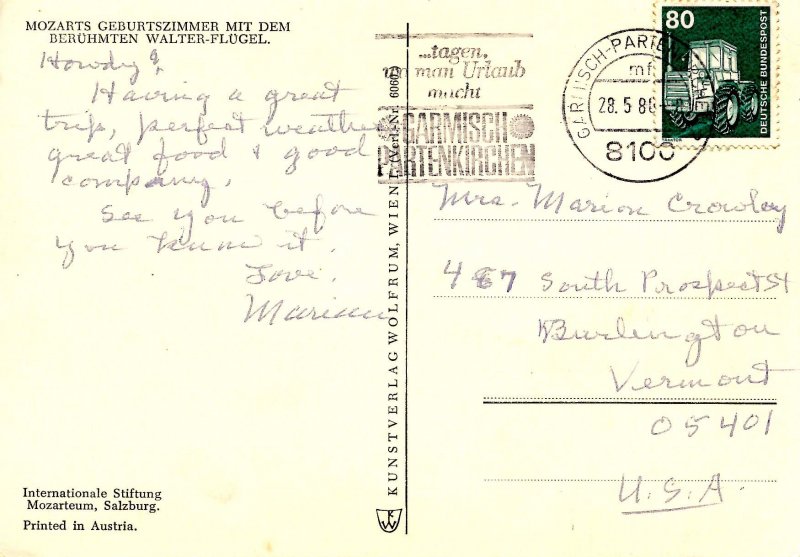 MOZARTS GEBURTSZIMMER MIT DEM
BERÜHMTEN WALTER-FLÜGEL.
Howdy!
Having a great
trip, perfect weather
great food & good
company.
See you before
you know it.
Love,
Marian
Internationale Stiftung
Mozarteum, Salzburg.
Printed in Austria.
KUNSTVERLAG WOLFRUM, WIEN I. (Verl.-Nr.
...tagen,
wo man Urlaub
macht
GARMISCH
PARTENKIRCHEN
GARMISCH-PARTENKIRCHEN
mf
28.5.8
8100
80
DEUTSCHE BUNDESPOST
TRAKTOR
Mrs. Marion Crowley
467 South Prospect St
Burlington
Vermont
05401
U.S.A.